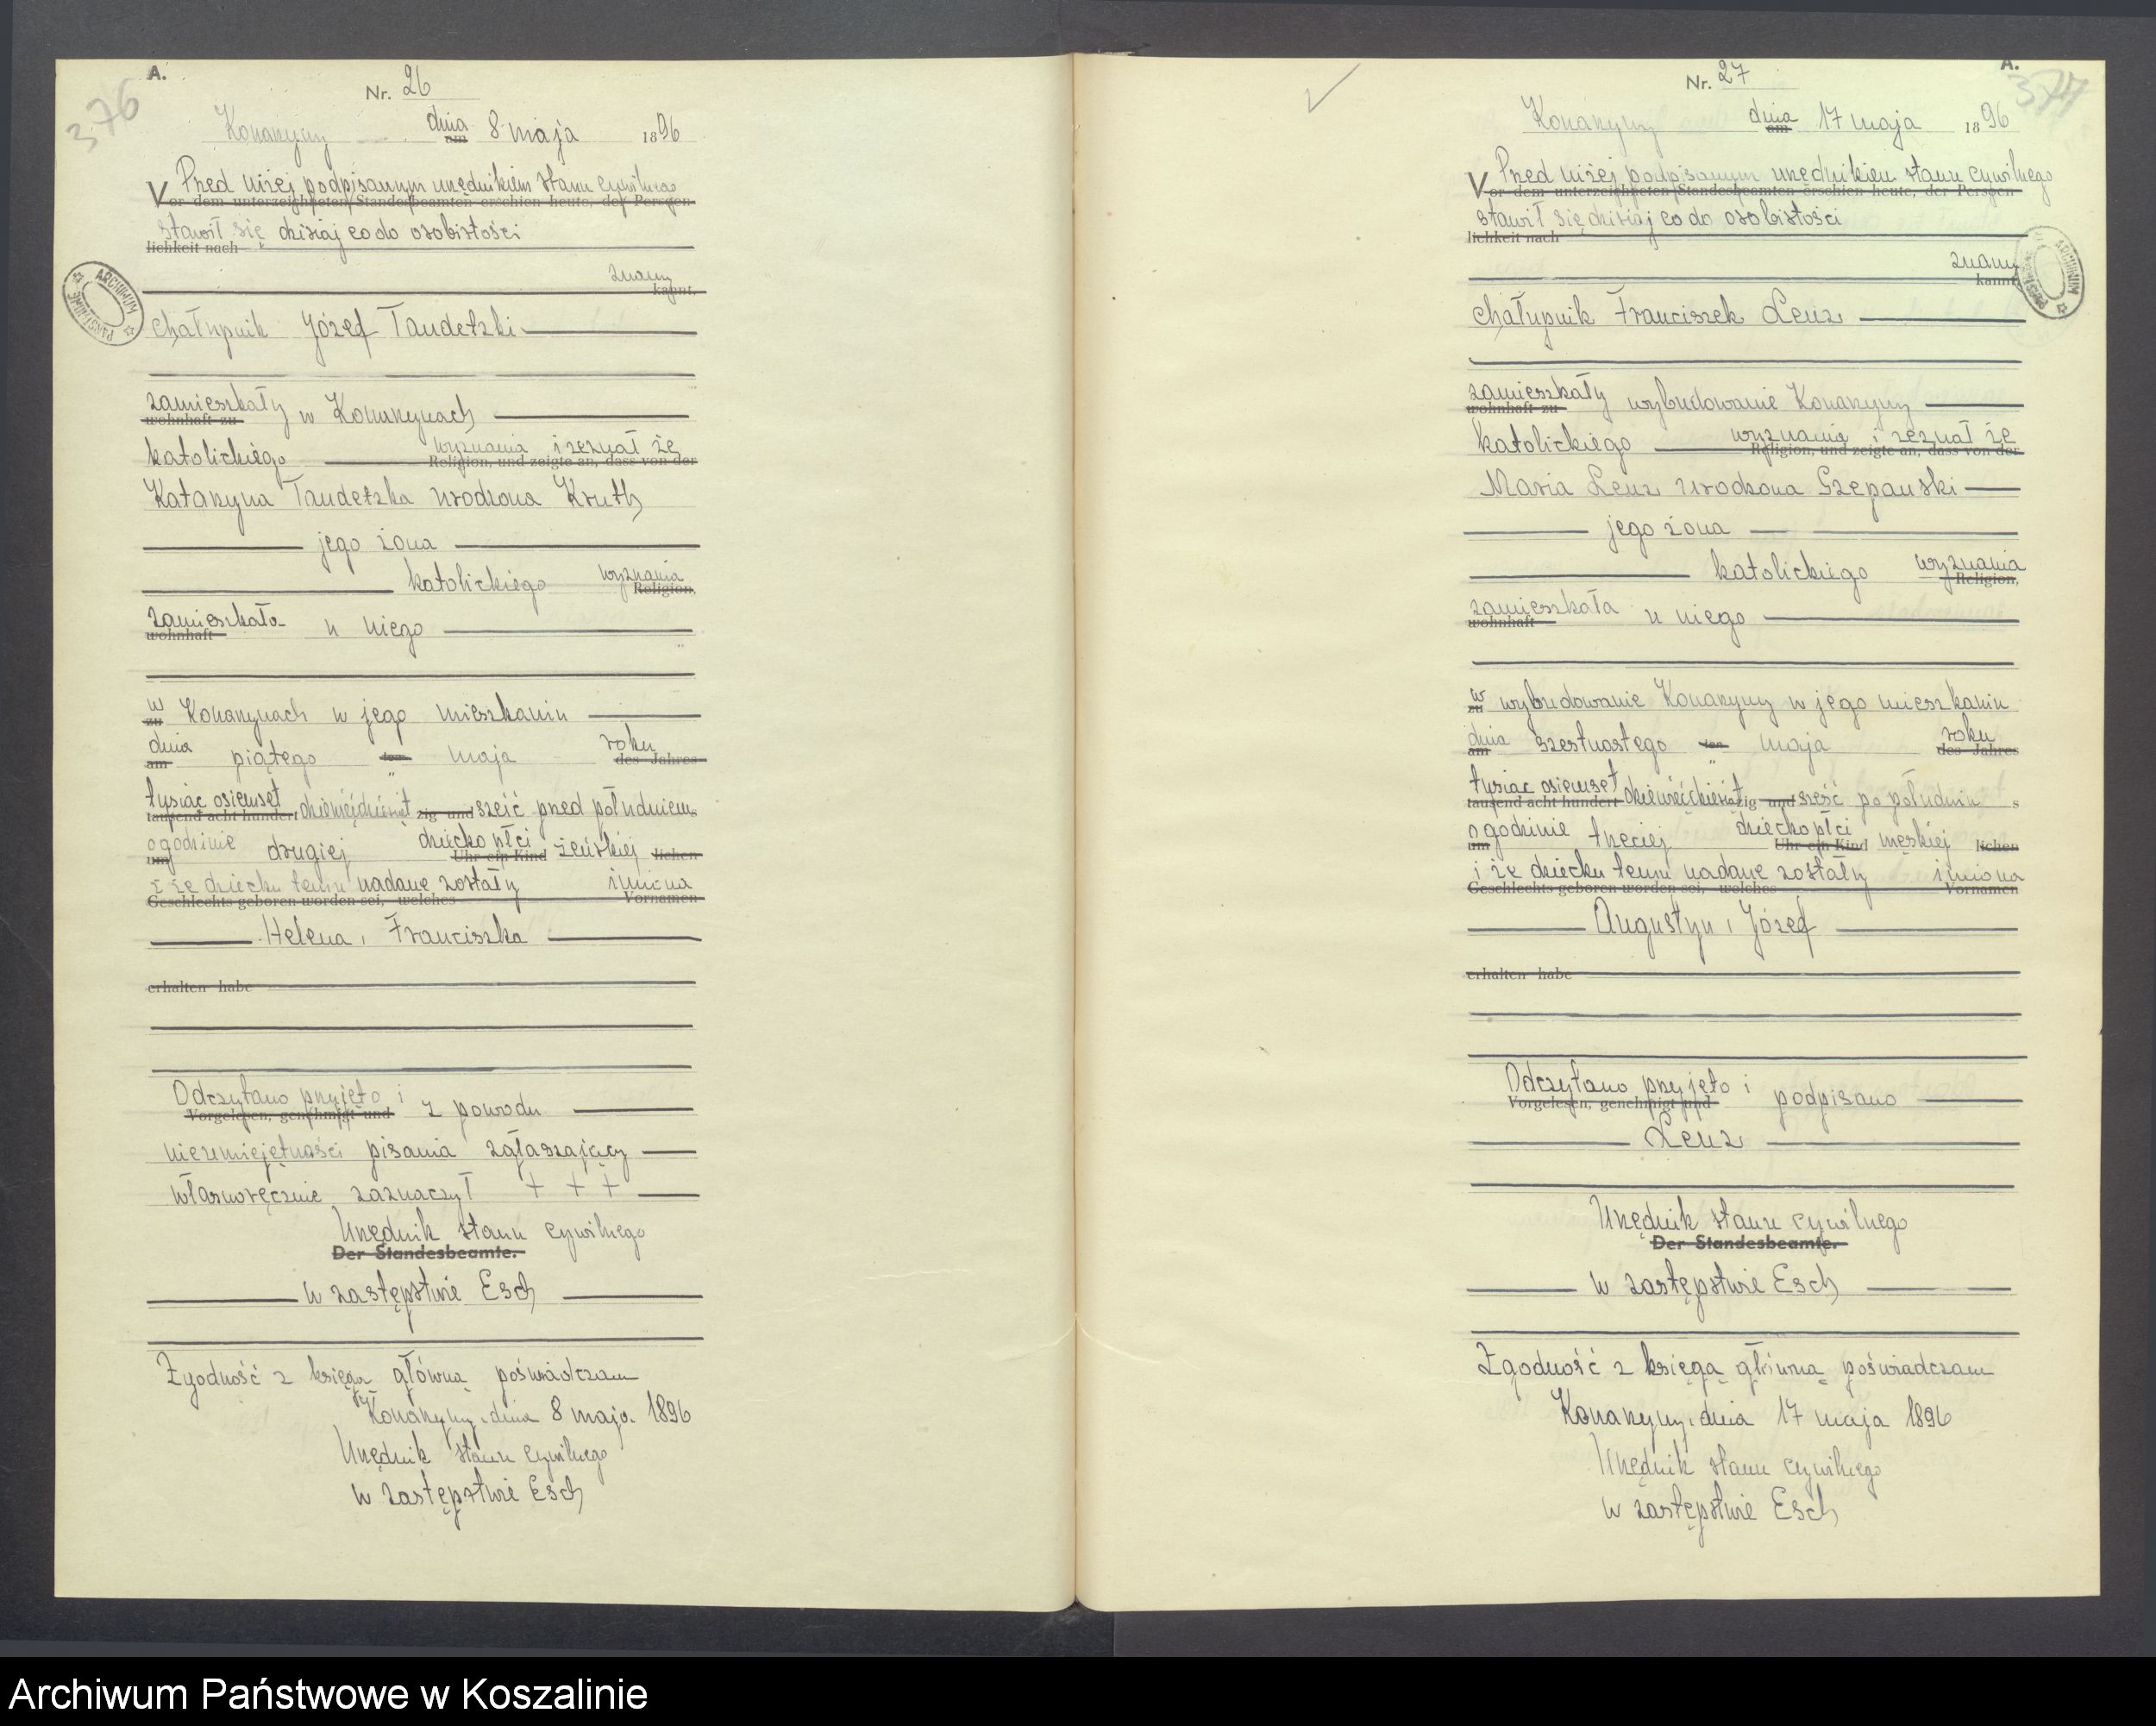 A.
376
Nr. 26
Konarzyny dnia am 8 maja 1896
Przed niżej podpisanym urzędnikiem stanu cywilnego
Vor dem unterzeichneten Standesbeamten erschien heute, der Persön-
stawił się dzisiaj co do osobistości
lichkeit nach
znany
kannt,
ARCHIWUM PAŃSTWOWE
chałupnik Józef Taudetzki
zamieszkały w Konarzynach
wohnhaft zu
wyznania i zeznał że
katolickiego Religion, und zeigte an, dass von der
Katarzyna Taudetzka urodzona Kruth
jego żona
katolickiego wyznania
Religion,
zamieszkała u niego
wohnhaft
w zu Konarzynach w jego mieszkaniu
dnia roku
am piątego ten maja des Jahres
tysiąc osiemset dziewięćdziesiąt sześć przed południem
tausend acht hundert zig und
o godzinie drugiej dziecko płci żeńskiej lichen
um Uhr ein Kind
i że dziecku temu nadane zostały imiona
Geschlechts geboren worden sei, welches Vornamen
Helena, Franciszka
erhalten habe
Odczytano przyjęto i z powodu
Vorgelesen, genehmigt und
nieumiejętności pisania zgłaszający
własnoręcznie zaznaczył + + +
Urzędnik stanu cywilnego
Der Standesbeamte.
w zastępstwie Esch
Zgodność z księgą główną poświadczam
Konarzyny, dnia 8 maja 1896
Urzędnik stanu cywilnego
w zastępstwie Esch
A.
377
Nr. 27
Konarzyny dnia am 17 maja 1896
Przed niżej podpisanym urzędnikiem stanu cywilnego
Vor dem unterzeichneten Standesbeamten erschien heute, der Persön-
stawił się dzisiaj co do osobistości
lichkeit nach
znany
kannt,
ARCHIWUM PAŃSTWOWE
chałupnik Franciszek Lenz
zamieszkały wybudowanie Konarzyny
wohnhaft zu
wyznania i zeznał że
katolickiego Religion, und zeigte an, dass von der
Maria Lenz urodzona Szepanski
jego żona
katolickiego wyznania
Religion,
zamieszkała u niego
wohnhaft
w zu wybudowanie Konarzyny w jego mieszkaniu
dnia roku
am szestnastego ten maja des Jahres
tysiąc osiemset dziewięćdziesiąt sześć po południu
tausend acht hundert zig und
o godzinie trzeciej dziecko płci męskiej lichen
um Uhr ein Kind
i że dziecku temu nadane zostały imiona
Geschlechts geboren worden sei, welches Vornamen
Augustyn, Józef
erhalten habe
Odczytano przyjęto i podpisano
Vorgelesen, genehmigt und
Lenz
Urzędnik stanu cywilnego
Der Standesbeamte.
w zastępstwie Esch
Zgodność z księgą główną poświadczam
Konarzyny, dnia 17 maja 1896
Urzędnik stanu cywilnego
w zastępstwie Esch
Archiwum Państwowe w Koszalinie